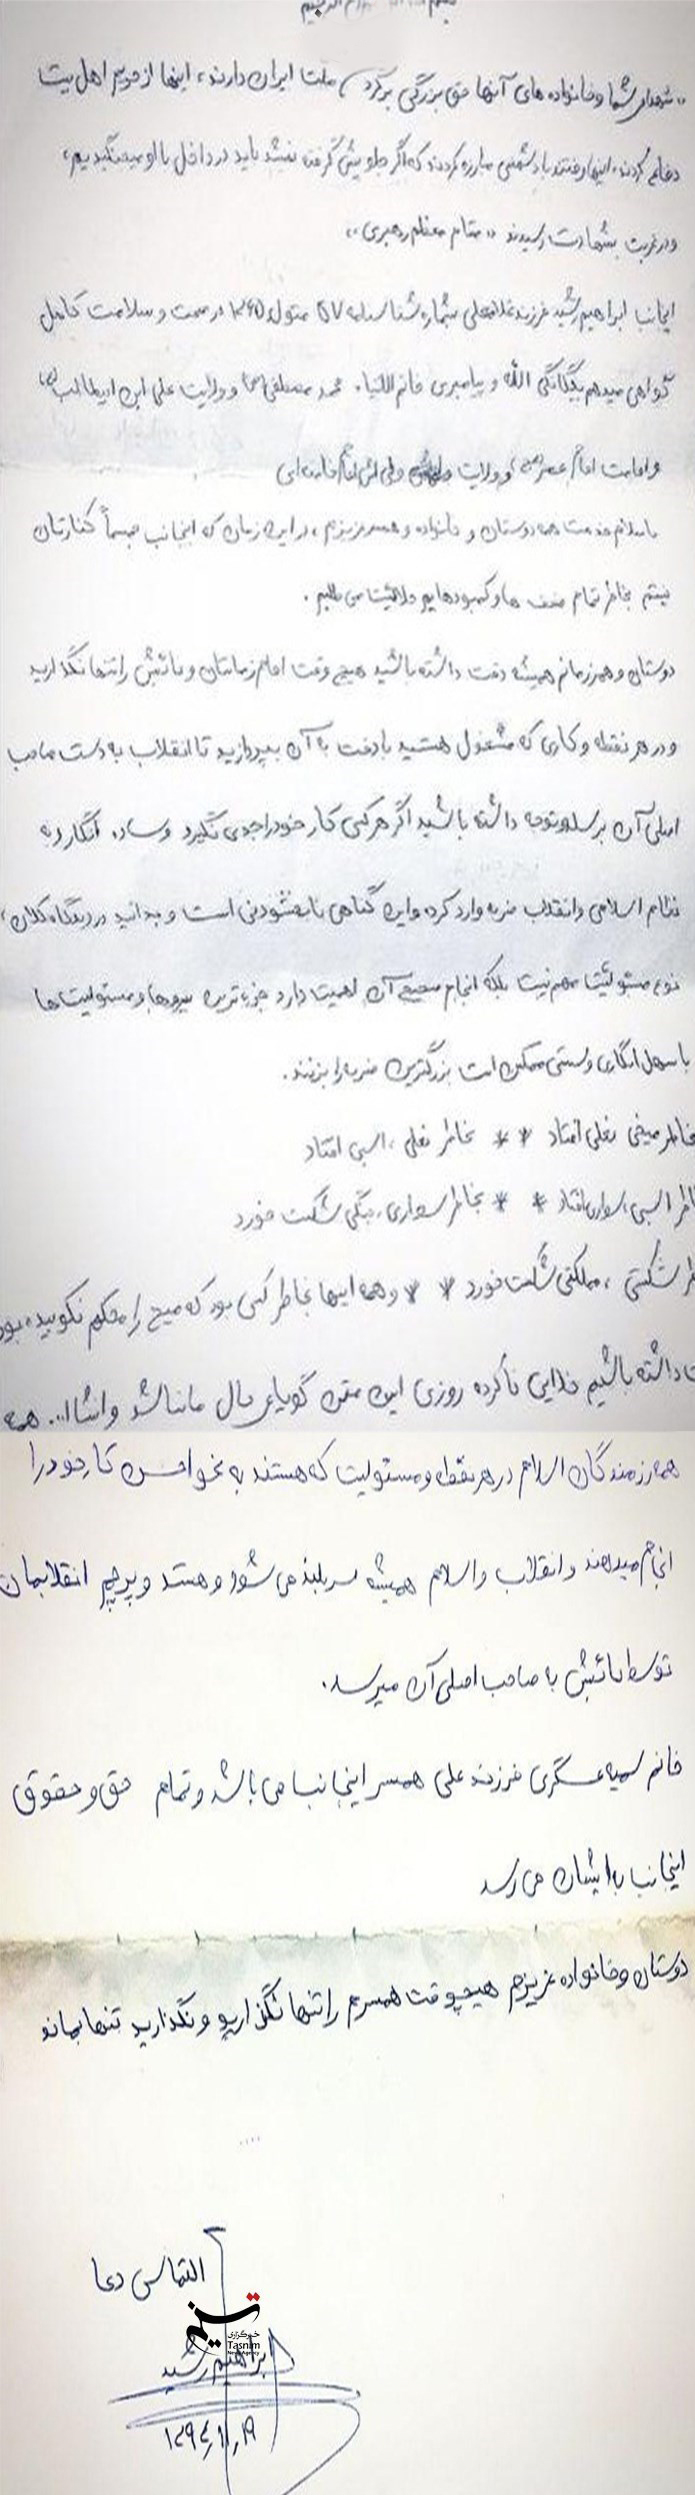 «شهدای شما و خانواده های آنها حق بزرگی بر گردن ملت ایران دارند، اینها از حریم اهل بیت
دفاع کردند، اینها رفتند با دشمنی مبارزه کردند که اگر جلویش گرفته نشد باید در داخل با او میجنگیدیم،
و در غربت بشهادت رسیدند «مقام معظم رهبری»
اینجانب ابراهیم رشید فرزند غلامعلی بشماره شناسنامه ۵۷ متولد ۱۳۶۵ در صحت و سلامت کامل
گواهی میدهم بیگانگی الله و پیامبری خاتم الانبیاء محمد مصطفی (ص) و ولایت علی ابن ابیطالب (ع)
و امامت امام عصر (عج) و ولایت ولی امر امام خامنه ای
با سلام خدمت همه دوستان و خانواده و همسر عزیزم، در این زمان که اینجانب جسماً کنارتان
نیستم بخاطر تمام ضعف ها و کمبودهایم حلالیت می طلبم.
دوستان و همرزمانم همیشه دقت داشته باشید هیچ وقت امام زمانتان و نائبش را تنها نگذارید
و در هر نقطه و کاری که مشغول هستید با دقت به آن بپردازید تا انقلاب به دست صاحب
اصلی آن برسد و توجه داشته باشید اگر هر کسی کار خود را جدی نگیرد و ساده انگارد به
نظام اسلامی و انقلاب ضربه وارد کرده و این گناهی نابخشودنی است و بدانید در دیدگاه کلان،
نوع مسئولیت مهم نیست بلکه انجام صحیح آن اهمیت دارد جزء ترین نیروها و مسئولیت ها
با سهل انگاری و سستی ممکن است بزرگترین ضربه را بزنند.
بخاطر میخی نعلی افتاد ** بخاطر نعلی، اسبی افتاد
اسبی، سواری افتاد ** بخاطر سواری، جنگی شکست خورد
شکستی، مملکتی شکست خورد ** و همه اینها بخاطر کسی بود که میخ را محکم نکوبیده بود
داشته باشیم خدایی ناکرده روزی این متن گویای حال ما نباشد و انشاا... همه
همه رزمندگان اسلام در هر نقطه و مسئولیت که هستند به نحو احسن کار خود را
انجام میدهند و انقلاب و اسلام همیشه سربلند می شود و هستند و پرچم انقلابمان
توسط نائبش به صاحب اصلی آن میرسد.
خانم سمیه عسگری فرزند علی همسر اینجانب می باشد و تمام حق و حقوق
اینجانب به ایشان می رسد
دوستان و خانواده عزیزم هیچوقت همسرم را تنها نگذارید و نگذارید تنها بماند
....
التماس دعا
تسنیم
خبرگزاری
Tasnim
News Agency
ابراهیم رشید
۱۳۹۴,۱۱,۱۹